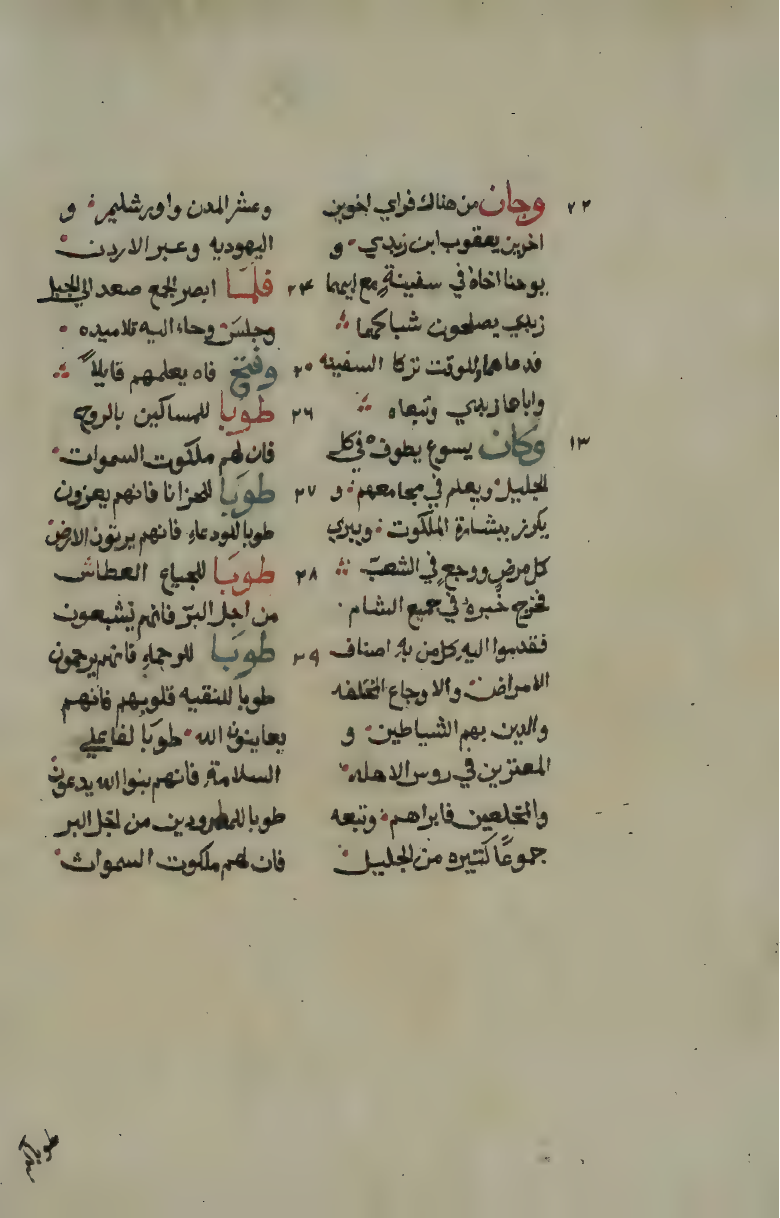 ٢٢ وجان من هناك فراي اخوين
اخرين يعقوب ابن زبدي و
يوحنا اخاه في سفينةٍ مع ابيهما
زبدي يصلحون شباكهما
فدعاهما وللوقت تركا السفينه
واباهما زبدي وتبعاه
٢٣ وكان يسوع يطوف في كل
الجليل ويعلم في مجامعهم و
يكرز ببشارة الملكوت ويبري
كل مرض ووجع في الشعب
فخرج خبره في جميع الشام
فقدموا اليه كل من به اصناف
الامراض والاوجاع المختلفه
والدين بهم الشياطين و
المعترين في روس الاهله
والمخلعين فابراهم وتبعه
جموعًا كتيره من الجليل
وعشر المدن واورشليم و
اليهوديه وعبر الاردن
٢٤ فلمّا ابصر الجمع صعد الي الجبل
وجلس وجاء اليه تلاميده
٢٥ وفتح فاه يعلمهم قايلاً
٢٦ طوبا للمساكين بالروح
فان لهم ملكوت السموات
٢٧ طوبا للحزانا فانهم يعزون
طوبا للودعاء فانهم يرتون الارض
٢٨ طوبا للجياع العطاش
من اجل البرّ فانهم يشبعون
٢٩ طوبا للرحماء فانهم يرحمون
طوبا للنقيه قلوبهم فانهم
يعاينون الله طوبا لفاعلي
السلامة فانهم بنوا الله يدعون
طوبا للمطرودين من اجل البر
فان لهم ملكوت السموات